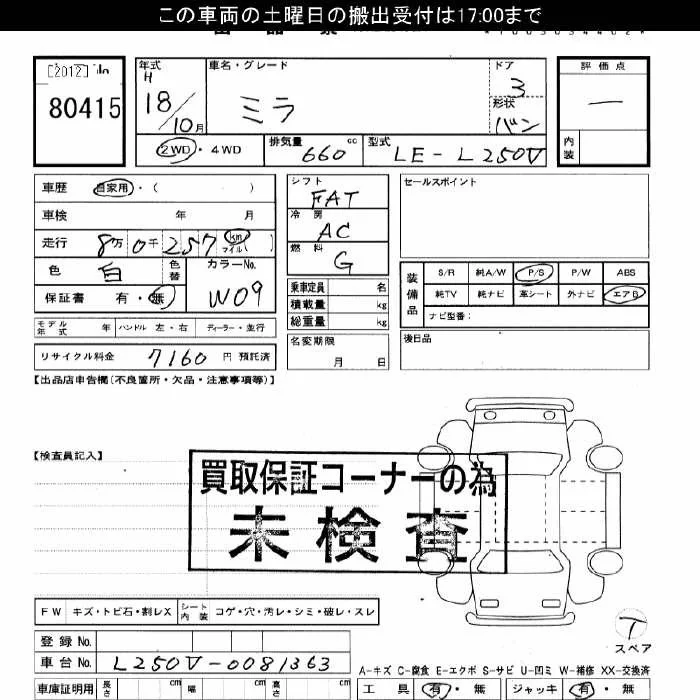 この車両の土曜日の搬出受付は17:00まで
[2012] No
80415
年式 H 18/10月
車名・グレード ミラ
ドア 3
形状 バン
評価点 一
内装
2WD・4WD
排気量 660 cc
型式 LE-L250V
車歴 自家用・( )
車検 年 月
走行 8万 0千 257 km マイル( )
色 白 色替
カラーNo. W09
保証書 有・無
モデル年式 年 ハンドル 左・右 ディーラー・並行
リサイクル料金 7160 円 預託済
シフト FAT
冷房 AC
燃料 G
乗車定員 名
積載量 kg
総重量 kg
名変期限 月 日
セールスポイント
装備品
S/R 純A/W P/S P/W ABS
純TV 純ナビ 革シート 外ナビ エアB
ナビ型番:
後日品
【出品店申告欄(不良箇所・欠品・注意事項等)】
【検査員記入】
買取保証コーナーの為
未検査
FW キズ・トビ石・割レX
シート内装 コゲ・穴・汚レ・シミ・破レ・スレ
登録No.
車台No. L250V-0081363
車庫証明用 長さ cm 幅 cm 高さ cm
T
スペア
A-キズ C-腐食 E-エクボ S-サビ U-凹ミ W-補修 XX-交換済
工具 有・無 ジャッキ 有・無